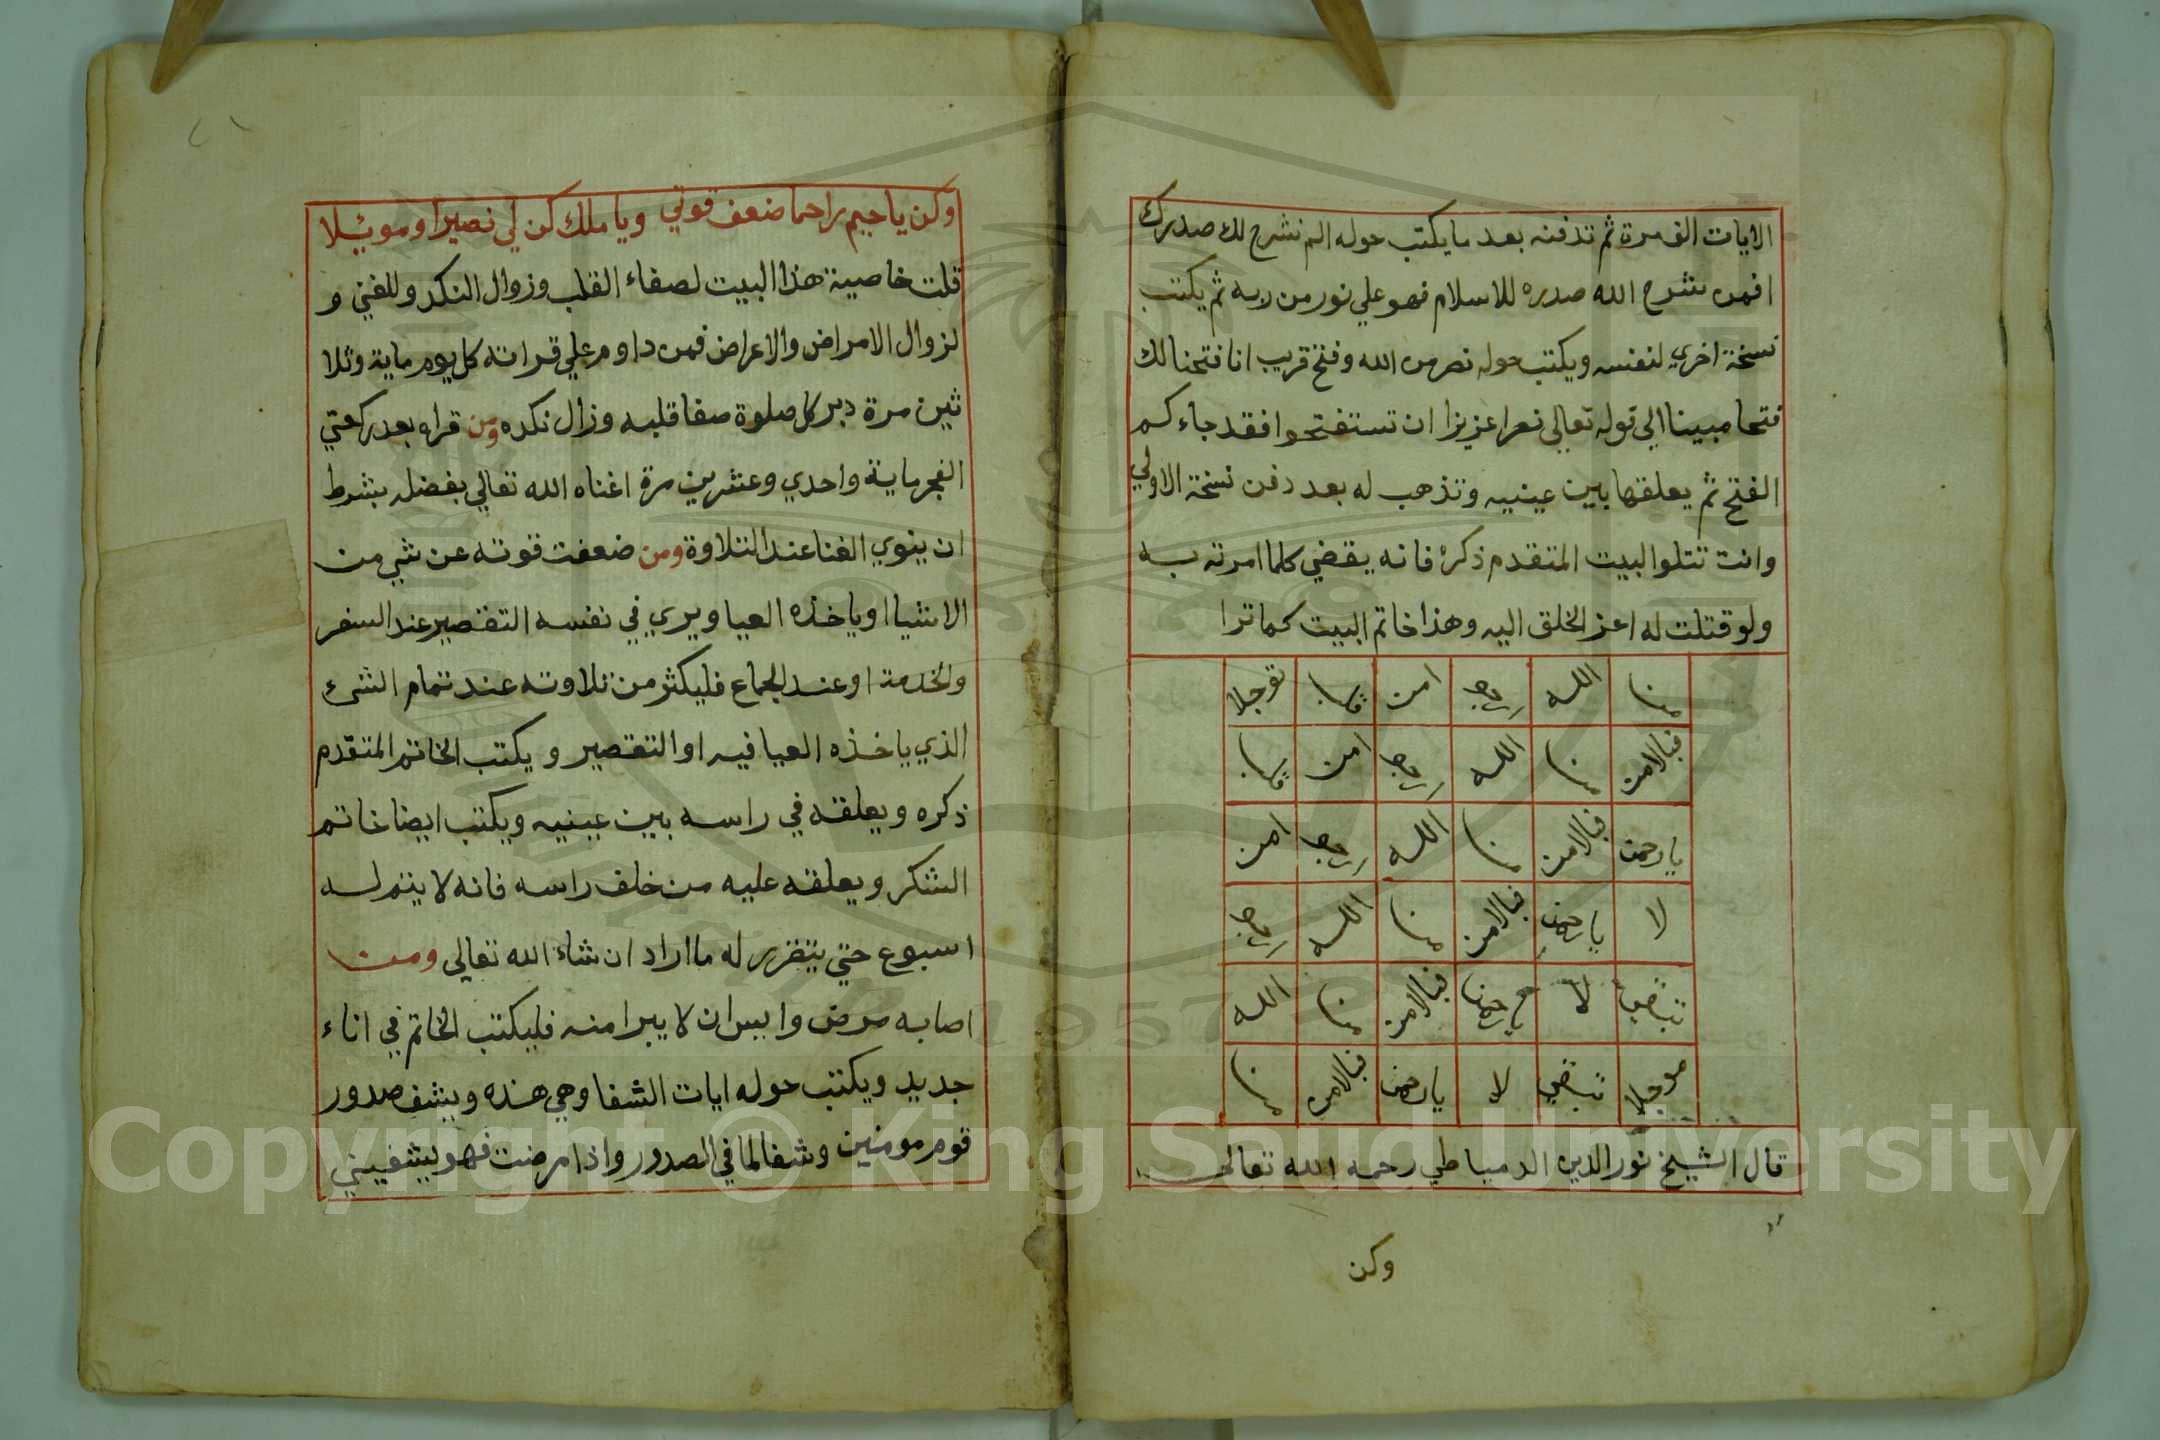 الايات الف مرة ثم تدفنه بعد ما يكتب حوله الم نشرح لك صدرك
افمن شرح الله صدره للاسلام فهو علي نور من ربه ثم يكتب
نسخة اخري لنفسه ويكتب حوله نصر من الله وفتح قريب انا فتحنا لك
فتحا مبينا الي قوله تعالي نصرا عزيزا ان تستفتحوا فقد جاءكم
الفتح ثم يعلقها بين عينيه وتذهب له بعد دفن نسخة الاولي
وانت تتلوا البيت المتقدم ذكره فانه يقضي كلما امرته به
ولو قتلت له اعز الخلق اليه وهذا خاتم البيت كما ترا
منا الله امن
فبالامن منا الله امن
يا رحمن فبالامن منا الله امن
لا يا رحمن فبالامن منا الله
لا فبالامن منا الله
لا يا رحمن فبالامن منا
قال الشيخ نور الدين الدمياطي رحمه الله تعالى
وكن
٢١
وكن يا رحيم راحما ضعف قوتي ويا ملك كن لي نصيرا وموئلا
قلت خاصية هذا البيت لصفاء القلب وزوال النكد وللغني و
لزوال الامراض والاعراض فمن داوم علي قراته كل يوم ماية وثلا
ثين مرة دبر كل صلوة صفا قلبه وزال نكده ومن قراه بعد ركعتي
الفجر ماية واحدي وعشرين مرة اغناه الله تعالي بفضله بشرط
ان ينوي الغنا عند التلاوة ومن ضعفت قوته عن شي من
الاشيا او ياخذه العيا ويري في نفسه التقصير عند السفر
والخدمة او عند الجماع فليكثر من تلاوته عند تمام الشئ
الذي ياخذه العيا فيه او التقصير و يكتب الخاتم المتقدم
ذكره ويعلقه في راسه بين عينيه ويكتب ايضا خاتم
الشكر ويعلقه عليه من خلف راسه فانه لا يتم له
اسبوع حتي يتقرر له ما اراد ان شاء الله تعالى ومن
اصابه مرض وايس ان لا يبرا منه فليكتب الخاتم في اناء
جديد ويكتب حوله ايات الشفا وهي هذه ويشف صدور
قوم مومنين وشفا لما في الصدور واذا مرضت فهو يشفيني
Copyright © King Saud University
1957